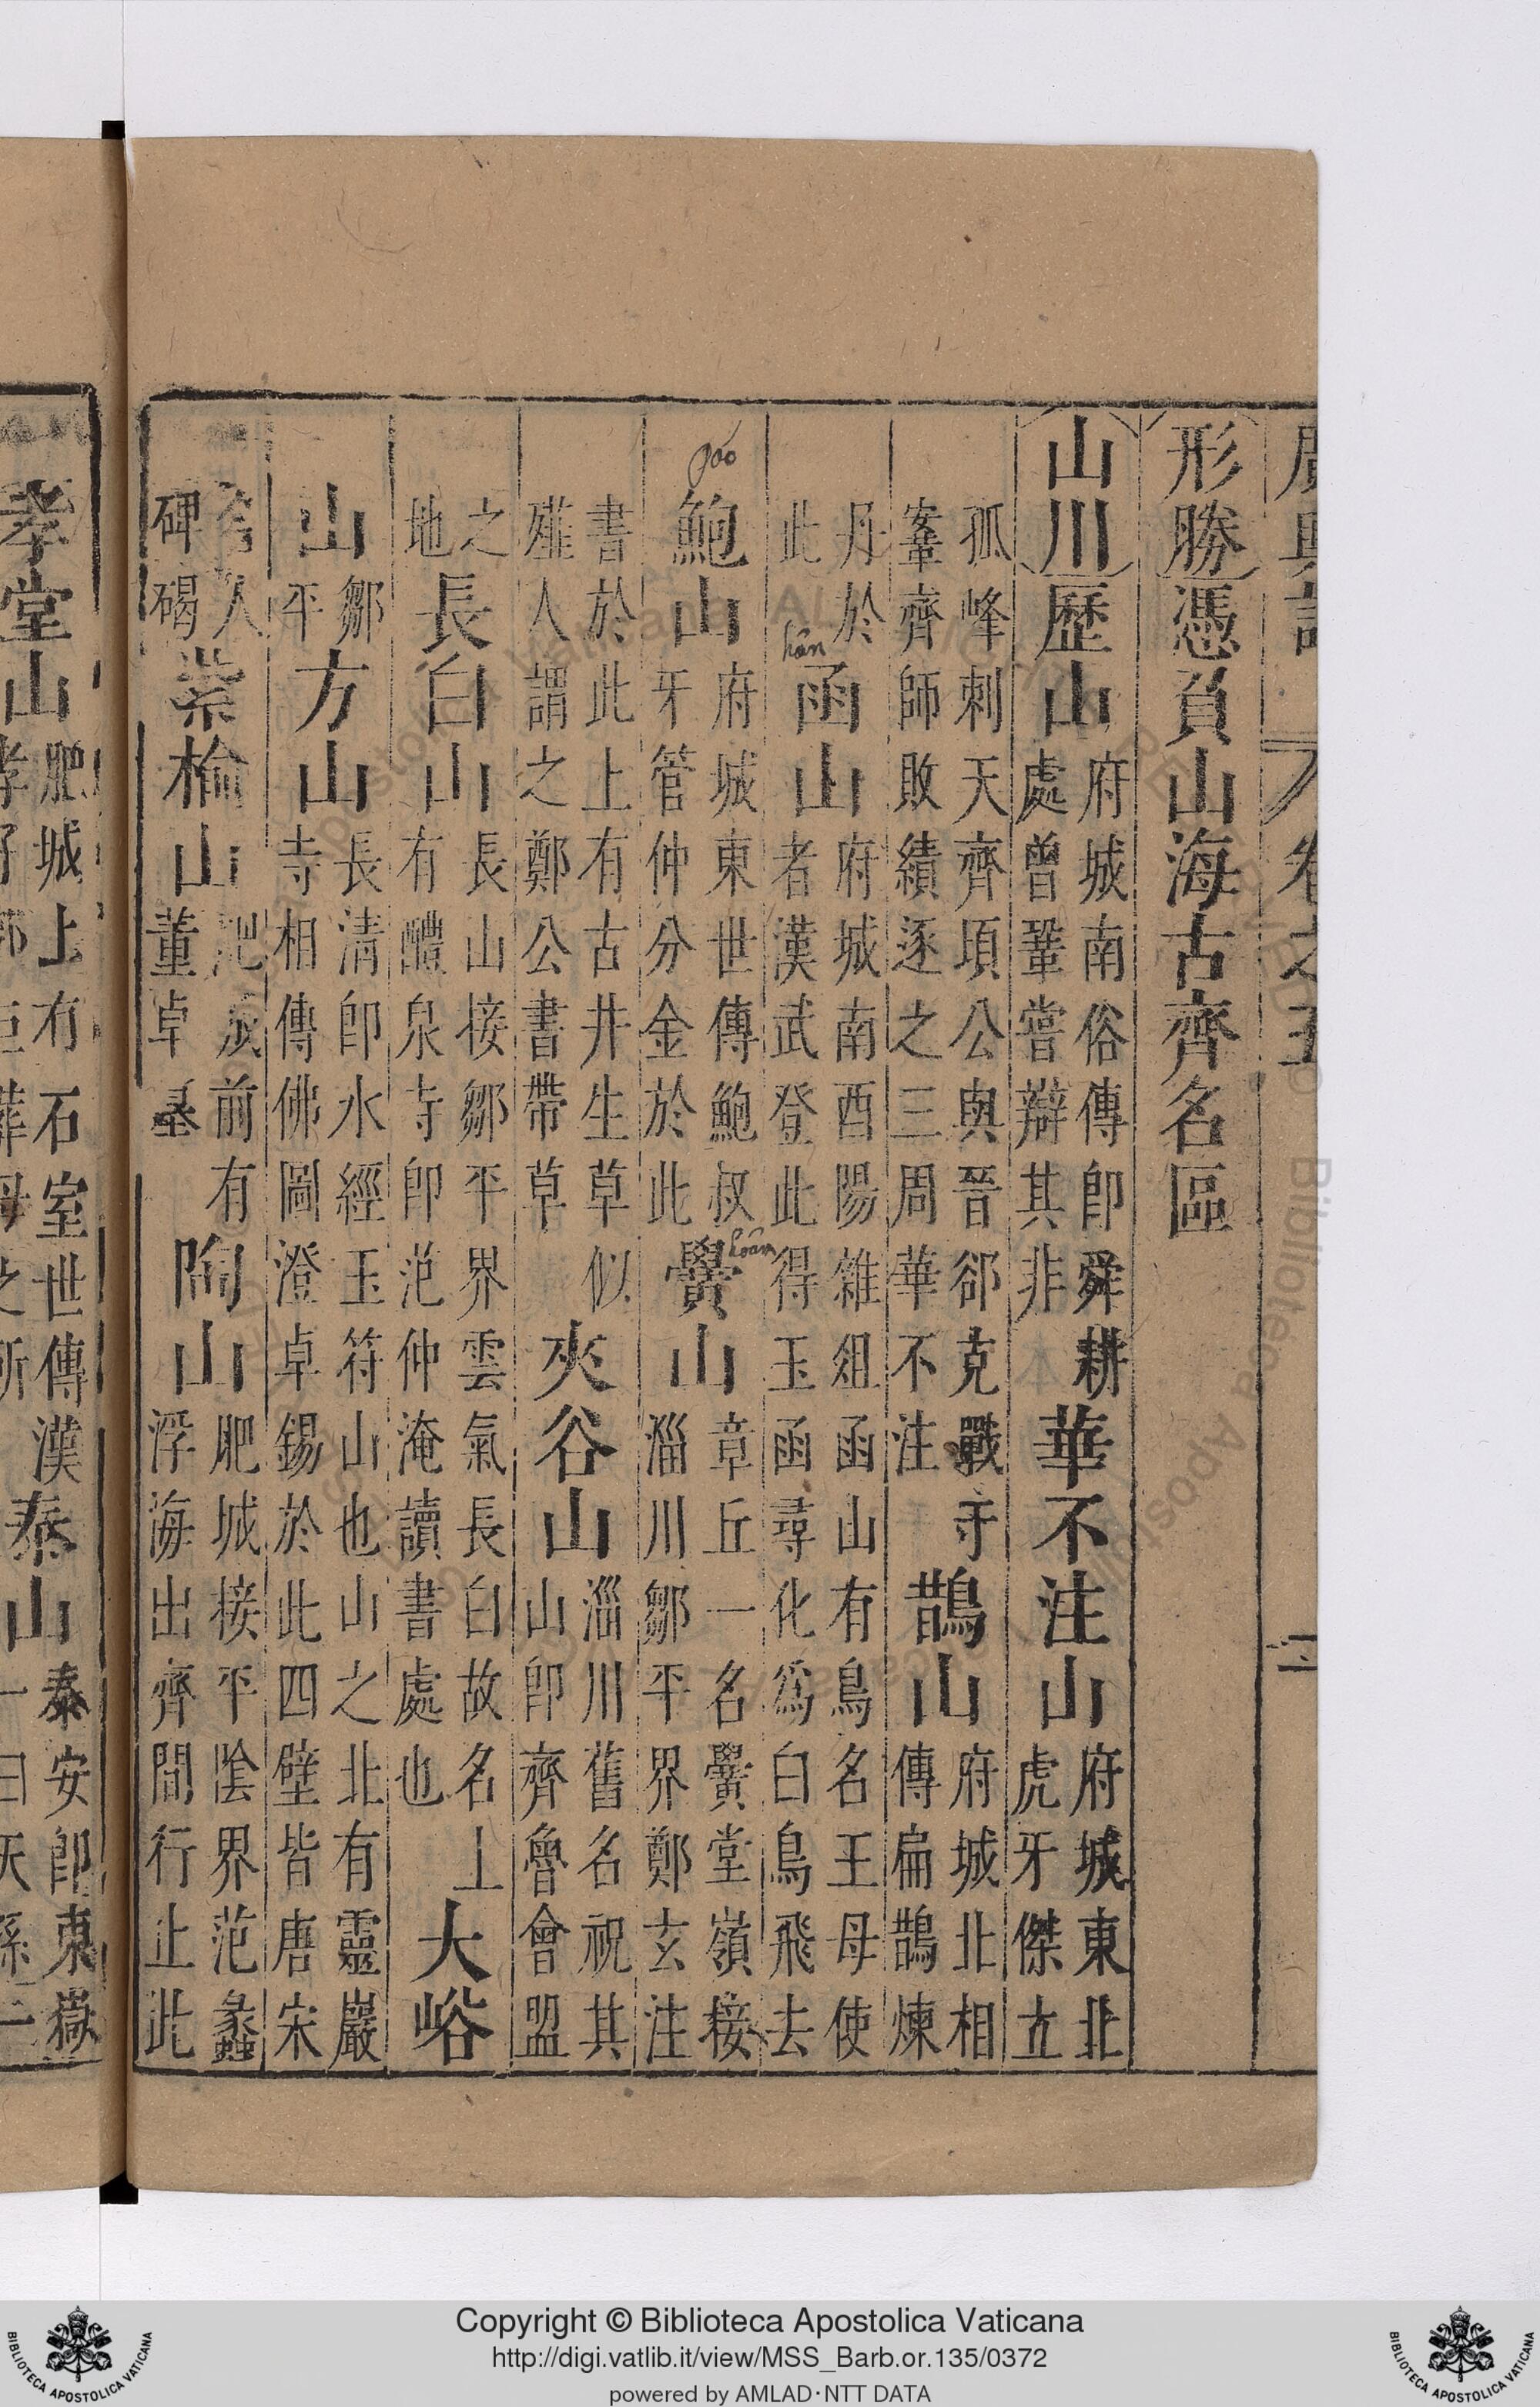 廣輿記 卷之五 二
形勝憑負山海古齊名區
山川歷山府城南俗傳即舜耕處曾鞏嘗辯其非華不注山府城東北虎牙傑立
孤峰刺天齊頃公與晉郤克戰于鞌齊師敗績逐之三周華不注鵲山府城北相傳扁鵲煉
丹於此函山府城南酉陽雜俎函山有鳥名王母使者漢武登此得玉函尋化爲白鳥飛去
鮑山府城東世傳鮑叔牙管仲分金於此黌山章丘一名黌堂嶺接淄川鄒平界鄭玄注
書於此上有古井生草似薤人謂之鄭公書帶草夾谷山淄川舊名祝其山即齊魯會盟
之地長白山長山接鄒平界雲氣長白故名上有醴泉寺即范仲淹讀書處也大峪
山鄒平方山長清即水經玉符山也山之北有靈巖寺相傳佛圖澄卓錫於此四壁皆唐宋
人碑碣紫榆山肥城前有董卓墓陶山肥城接平陰界范蠡浮海出齊間行止此
孝堂山肥城上有石室世傳漢孝子郭巨葬母之所泰山泰安即東嶽一曰天孫
pao
hân
hoâm
Copyright © Biblioteca Apostolica Vaticana
http://digi.vatlib.it/view/MSS_Barb.or.135/0372
powered by AMLAD·NTT DATA
BIBLIOTECA APOSTOLICA VATICANA
BIBLIOTECA APOSTOLICA VATICANA